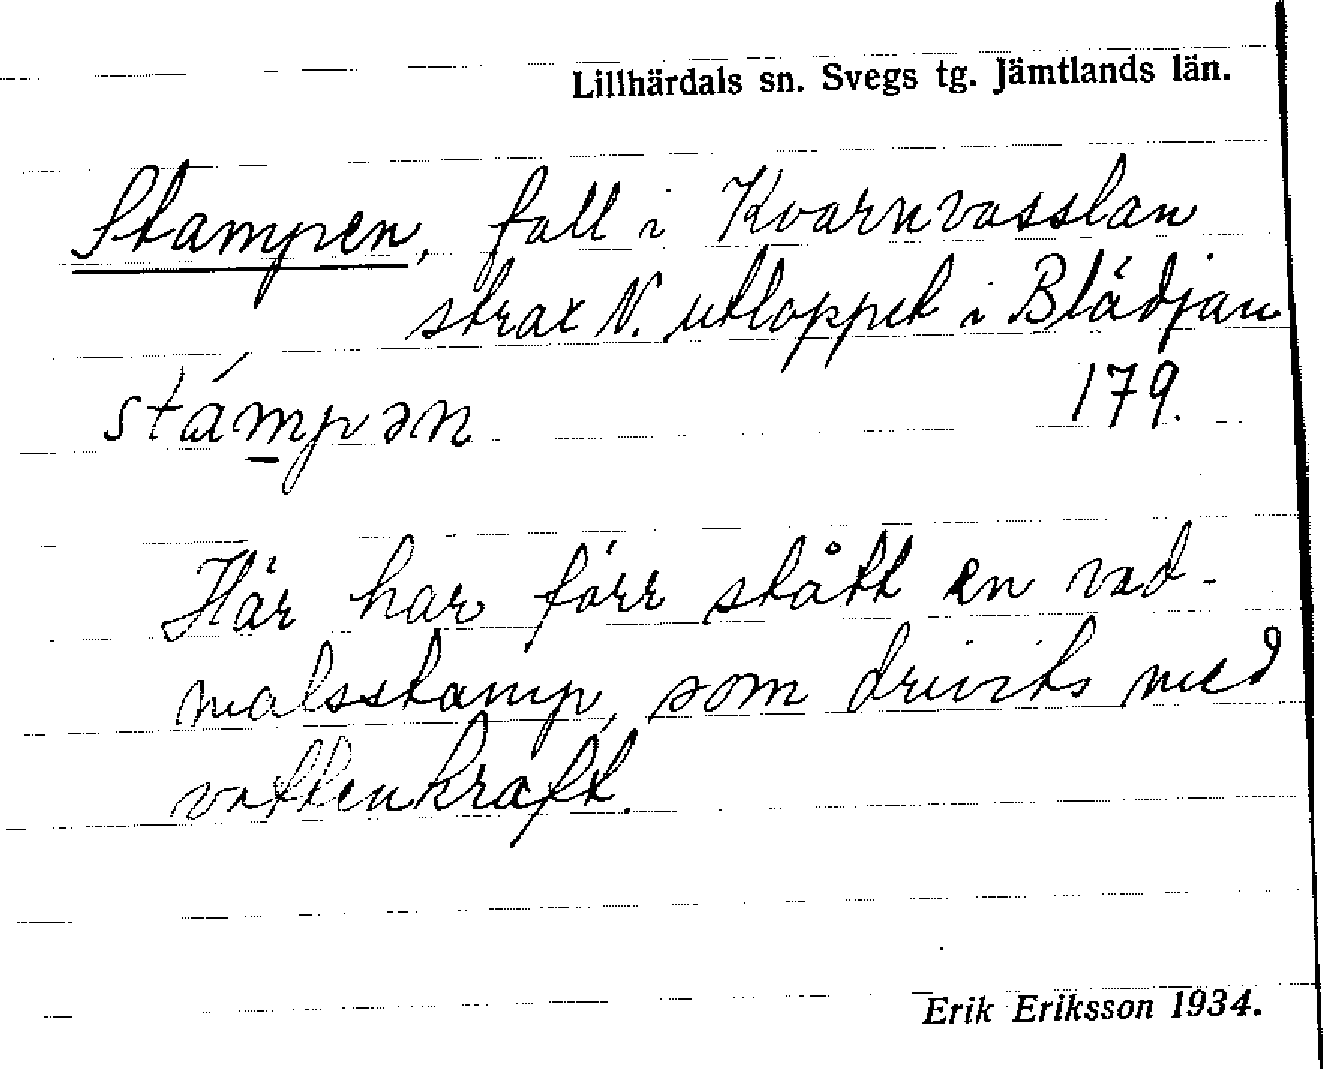 Lillhärdals sn. Svegs tg. Jämtlands län.
Stampen, fall i Kvarnvasslan
strax N. utloppet i Blädjan
179.
stámpən
Här har förr stått en vad-
malsstamp, som drivits med
vattenkraft.
Erik Eriksson 1934.